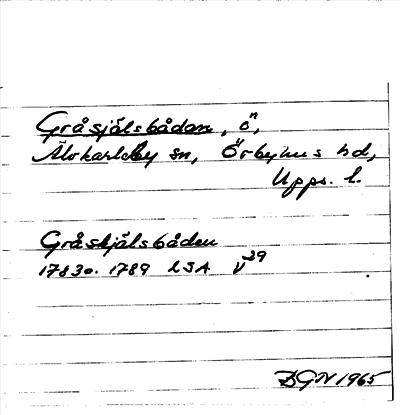 Gråsjälsbådan, öⁿ,
Älvkarleby sn, Örbyhus hd,
Upps. l.
Gråskjälsbåden
1783 o. 1789 LSA V³⁹
BGN 1965